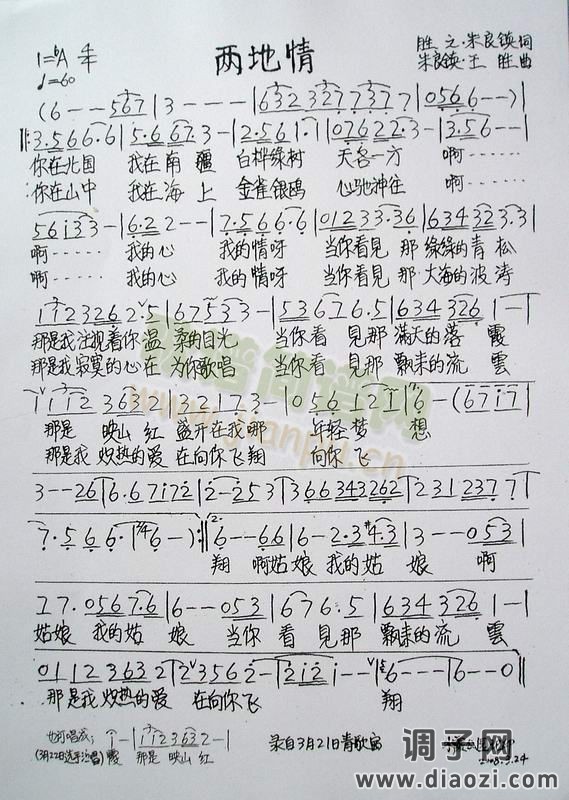 两地情
1=bA 4/4
♩=60
胜之·朱良镇词
朱良镇·王胜曲
(6 - - 567 | 3 - - - | 632 327 737 7 | 056 6 - - ) |
3.566 6.6 | 5.667 3 - | 2.56 1. 1 | 07622 2.3 - | 3.56 - - |
你在北国 我在南疆 白桦绿树 天各一方 啊······
你在山中 我在海上 金雀银鸥 心驰神往 啊······
56i33 - | 6.22 - - | 7.566 6.6 | 01233.36 | 634323.3 |
啊······ 我的心 我的情呀 当你看見 那绿绿的青松
啊······ 我的心 我的情呀 当你看見 那大海的波涛
1123262.5 | 67533 - | 53676.5 | 634326 | 1 - |
那是我注视着你温柔的目光 当你看見那满天的落霞
那是我寂寞的心在为你歌唱 当你看見那飘来的流雲
1112363 | 132173 - | 056121 | 6 - (6717 |
那是映山红盛开在我哪 年轻梦想
那是我炽热的爱在向你飞翔 向你飞
3 - - 26 | 6.67172 | 2 - 253 | 366343262 | 2312377 |
7.566 6. | 6 - ) :| 6 - - 66 | 6 - 2.343 | 3 - - 053 |
翔 啊姑娘 我的姑娘 啊
17.0567.6 | 6 - - 053 | 676.5 | 634326 | 1 - |
姑娘 我的姑娘 当你看見那飘来的流雲
01123632 | 23562 - | 2i2i - - | 6 - - - | 6 - - 0 ||
那是我炽热的爱 在向你飞 翔
也可唱成: 1 - | 1123632 - |
(3月22日选手演唱) 霞 那是映山红
录自3月21日青歌赛
2008.3.24
调子网
www.diaozi.com